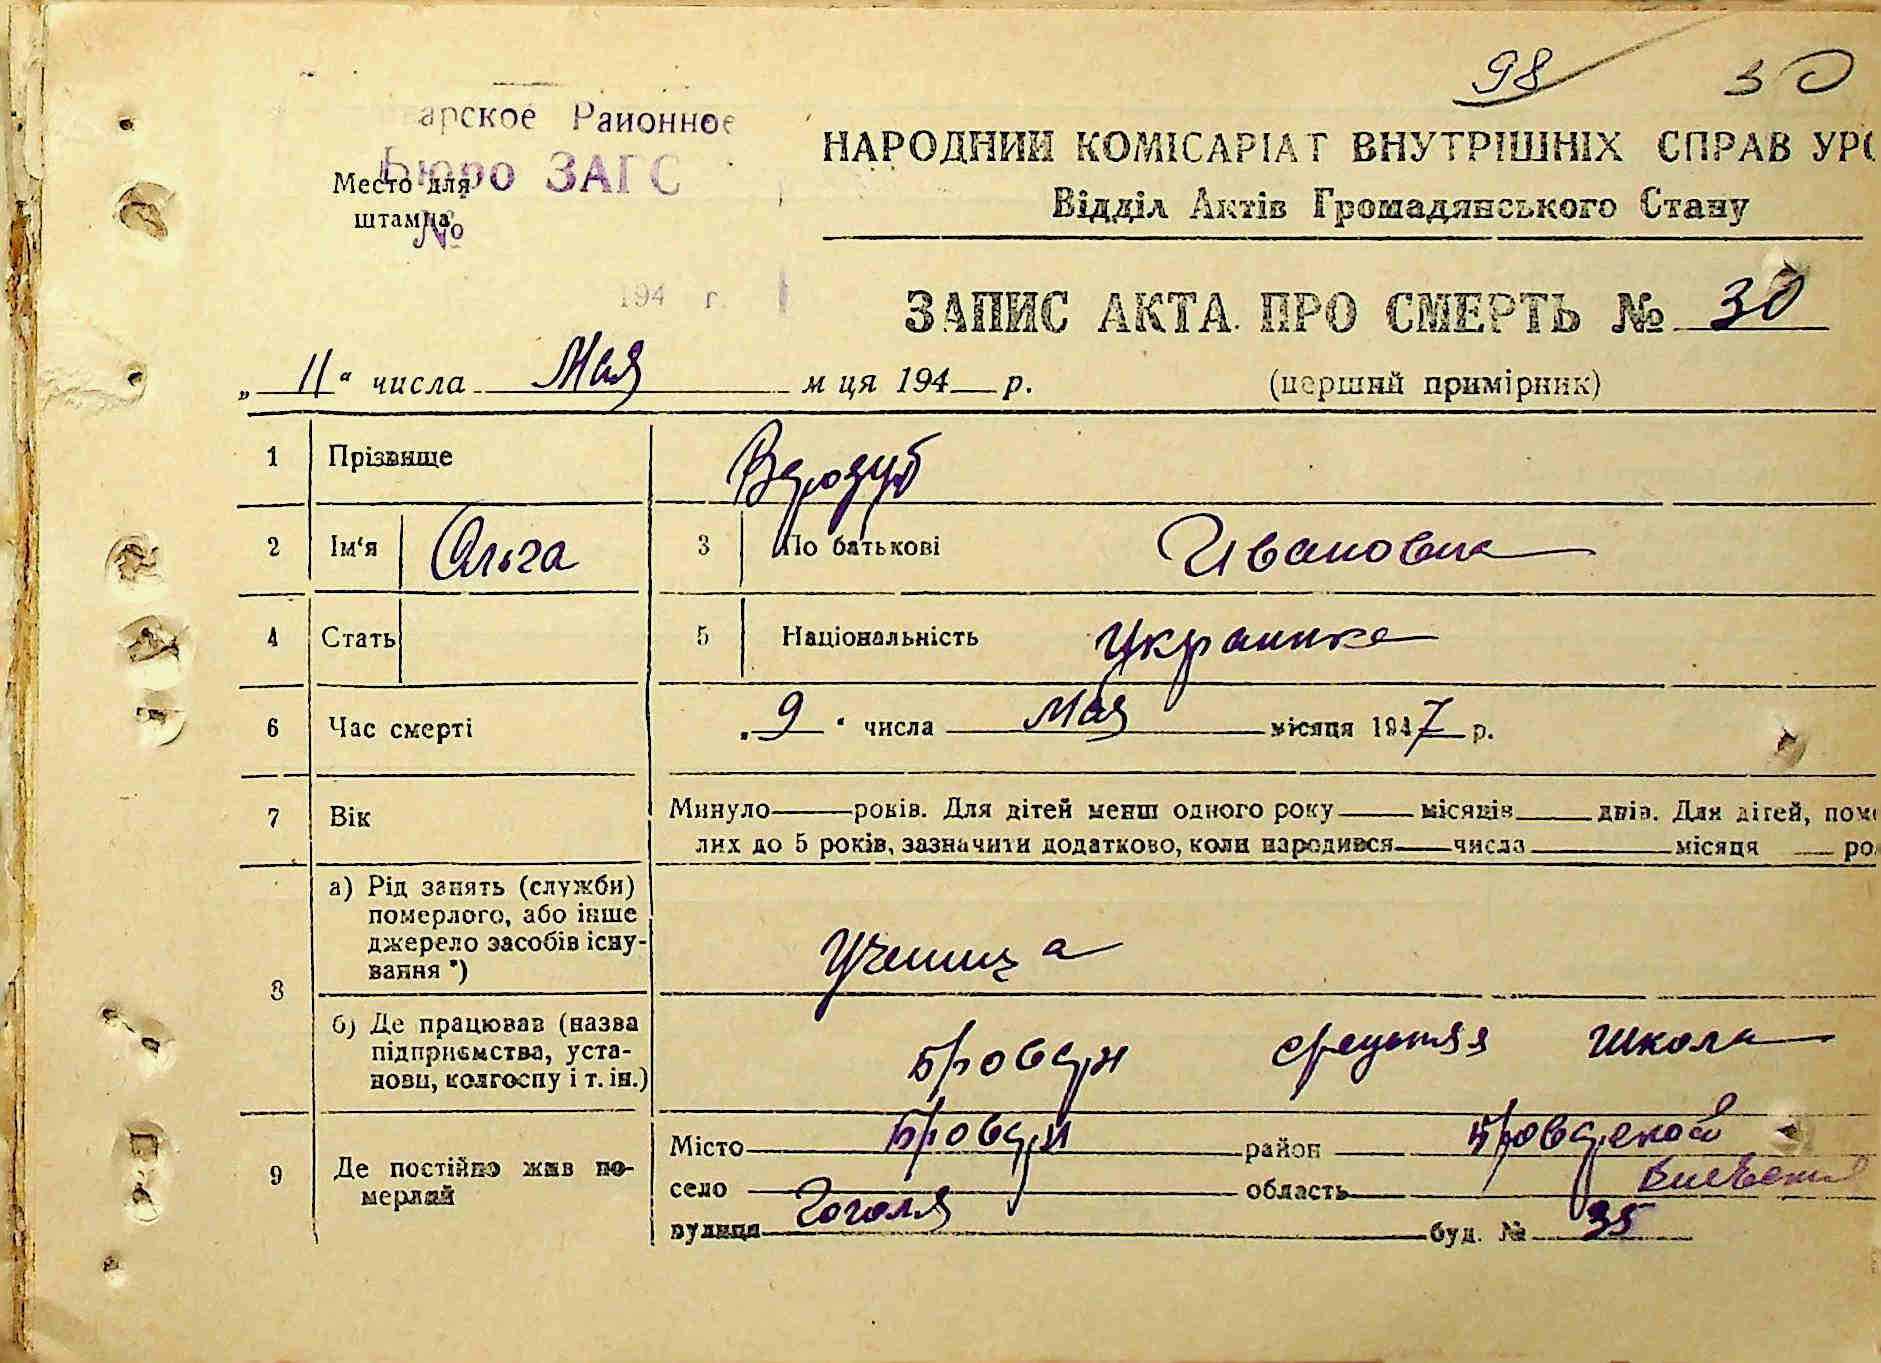 98 30
арское Районное
Бюро ЗАГС
Место для
штампа
№
194 г.
НАРОДНИЙ КОМІСАРІАТ ВНУТРІШНІХ СПРАВ УРС
Відділ Актів Громадянського Стану
ЗАПИС АКТА ПРО СМЕРТЬ № 30
„ 11 “ числа Мая м ця 194 р. (перший примірник)
1 Прізвище
2 Ім‘я Ольга 3 По батькові Ивановна
4 Стать 5 Національність Украинка
6 Час смерті „ 9 “ числа Мая місяця 1947 р.
7 Вік Минуло років. Для дітей менш одного року місяців днів. Для дітей, поме
лих до 5 років, зазначити додатково, коли народився числа місяця ро
8 а) Рід занять (служби)
померлого, або інше
джерело засобів існу-
вання *) Ученица
б) Де працював (назва
підприємства, уста-
нови, колгоспу і т. ін.) Бровари средняя школа
9 Де постійно жив по-
мерлий
Місто Бровари район Броварской
село область Киевская
вулиця Гоголя буд. № 35